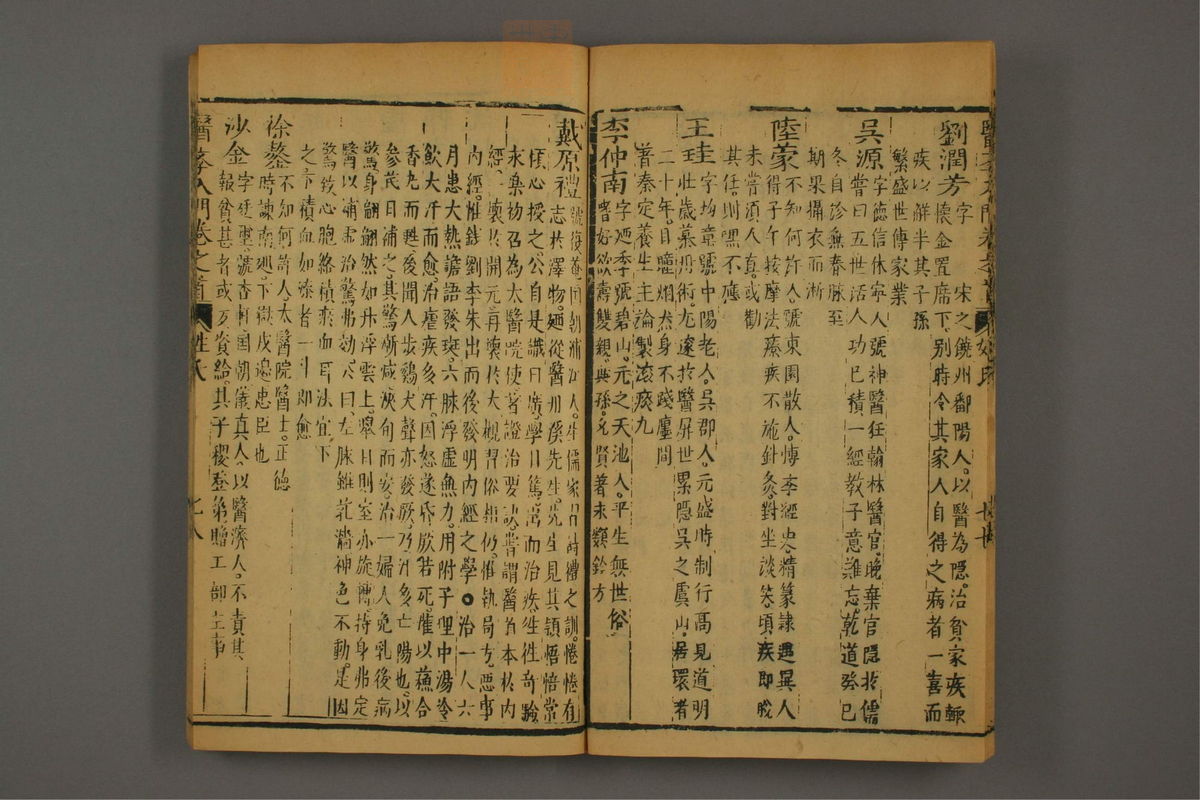 劉潤芳字 宋之饒州鄱陽人以醫為隱治貧家疾輒
懷金置席下別時令其家人自得之病者一喜而
疾以解半其子孫
繁盛世傳家業
吳源字德信休寧人號神醫任翰林醫官晚棄官隱於儒
嘗曰五世活人功已積一經教子意難忘乾道癸巳
冬自診無春脉至
期果攝衣而逝
陸蒙不知何許人號東園散人博李經史精篆隸遇異人
得子午按摩法療疾不施針灸對坐談笑頃疾即脫
未嘗須人真或勸
其任則哂不應
王珪字均章號中陽老人吳郡人元盛時制行高見道明
壯歲慕丹術尤邃於醫屏世累隱吳之虞山居環者
二十年日瞳烱然身不踐塵間
著泰定養生主論製滾痰丸
李仲南字廼季號碧山元之天池人平生無世俗
嗜好欲壽雙親與孫允賢著永類鈐方
戴原禮號復菴國朝浦江人生儒家習詩禮之訓惓惓有
志於澤物廼從醫丹溪先生先生見其穎悟倍常
傾心授之公自是識日廣學日篤出而治疾往往奇驗
永樂初召為太醫院使著證治要訣嘗謂醫肖本於內
經一壞於開元再壞於大觀習俗相仍惟執局方惡事
內經惟錢劉李朱出而後發明內經之學○治一人六
月患大熱譫語發斑六脉浮虛無力用附子理中湯冷
飲大汗而愈治瘧疾多汗因怒遂昏厥若死灌以蘇合
香丸而甦後聞人步鷄犬聲亦發厥乃汗多亡陽也以
參芪日補之其驚漸减浹旬而安治一婦人免乳後病
驚身翩翩然如升浮雲上舉目則室亦旋轉持身弗定
醫以補虛治驚弗効公曰左脉雖芤濇神色不動是因
驚致心胞絡積瘀血耳法宜下
之下積血如漆者一斗即愈
徐鏊不知何許人太醫院醫士正德
時諫南廵下獄戍邊忠臣也
沙金字廷璽號杏軒國朝儀真人以醫濟人不責其
報貧甚者或反資給其子稷登第贈工部主事
醫李入門卷之首 姓氏 七八